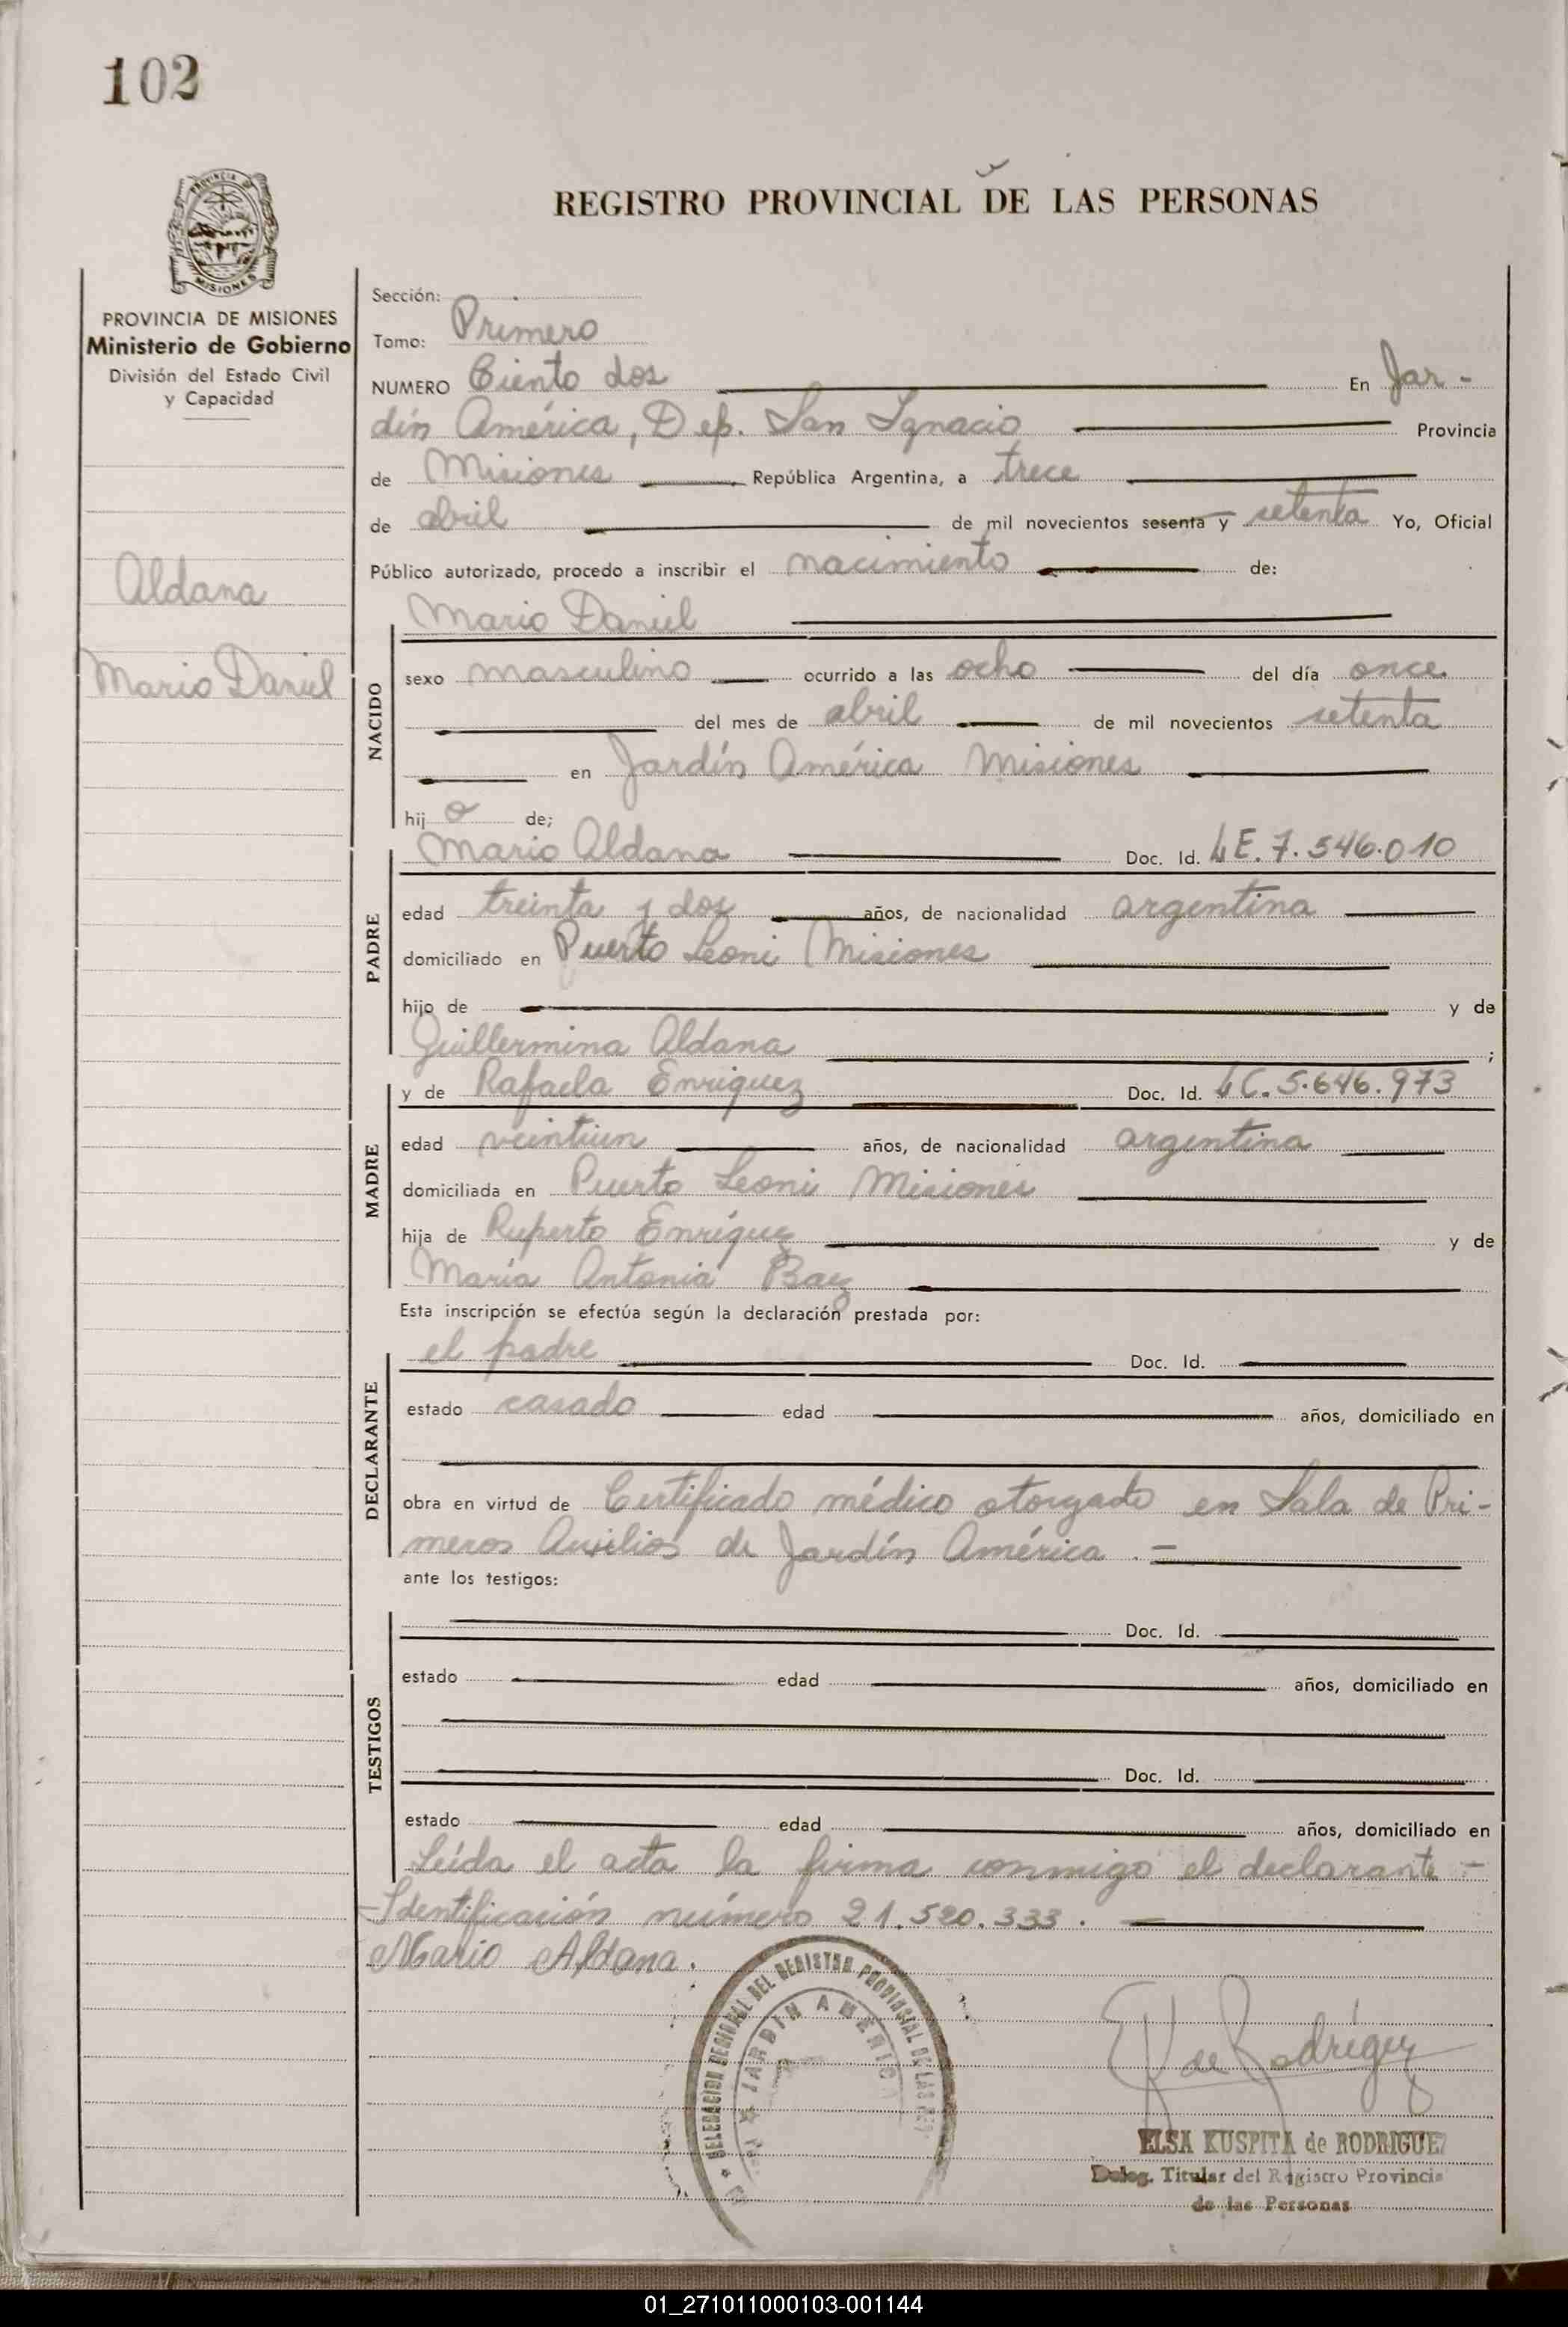 102
PROVINCIA DE
MISIONES
REGISTRO PROVINCIAL DE LAS PERSONAS
PROVINCIA DE MISIONES
Ministerio de Gobierno
División del Estado Civil
y Capacidad
Aldana
Mario Daniel
Sección:
Tomo: Primero
NUMERO Ciento dos En Jar-
dín América, Dep. San Ignacio Provincia
de Misiones República Argentina, a trece
de abril de mil novecientos sesenta y setenta Yo, Oficial
Público autorizado, procedo a inscribir el nacimiento de:
Mario Daniel
NACIDO
sexo masculino ocurrido a las ocho del día once
del mes de abril de mil novecientos setenta
en Jardín América Misiones
hij o de;
Mario Aldana Doc. Id. LE. 7.546.010
PADRE
edad treinta y dos años, de nacionalidad argentina
domiciliado en Puerto Leoni Misiones
hijo de y de
Guillermina Aldana ;
y de Rafaela Enriquez Doc. Id. LC. 5.646.973
MADRE
edad veintiun años, de nacionalidad argentina
domiciliada en Puerto Leoni Misiones
hija de Ruperto Enríquez y de
María Antonia Baez
Esta inscripción se efectúa según la declaración prestada por:
el padre Doc. Id.
DECLARANTE
estado casado edad años, domiciliado en
obra en virtud de Certificado médico otorgado en Sala de Pri-
meros Auxilios de Jardín América .-
ante los testigos:
Doc. Id.
TESTIGOS
estado edad años, domiciliado en
Doc. Id.
estado edad años, domiciliado en
Leída el acta la firma conmigo el declarante -
-Identificación número 21.520.333. -
Mario Aldana.
DELEGACION REGIONAL DEL REGISTRO PROVINCIAL DE LAS PER
JARDIN AMERIC
E K de Rodríguez
ELSA KUSPITA de RODRIGUEZ
Deleg. Titular del Registro Provincia
de las Personas
01_271011000103-001144